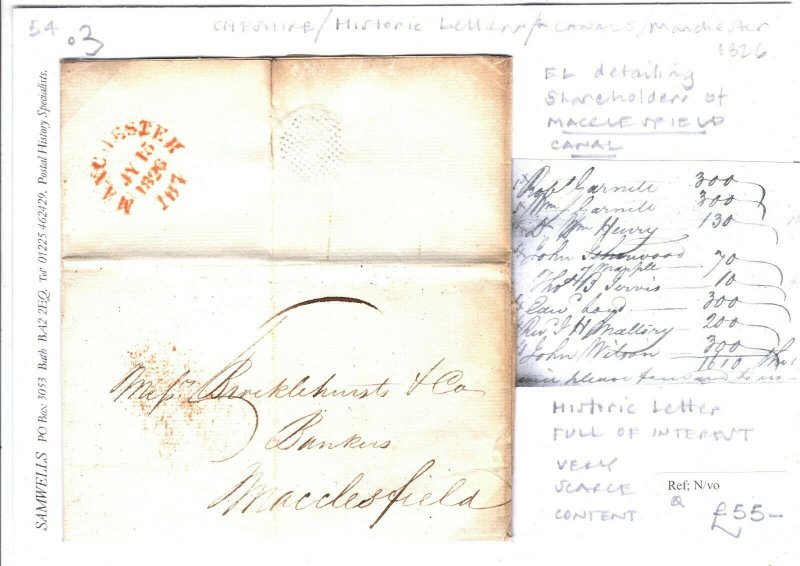 54 .03
CHESHIRE/Historic Letters/& CANALS/Manchester
1826
EL detailing
Shareholders of
MACCLESFIELD
CANAL
SAMWELLS PO Box 3053 Bath BA2 2EQ. Tel 01225 462429. Postal History Specialists.
MANCHESTER
JY 15
1826
187
Messrs Brocklehursts & Co
Bankers
Macclesfield
Robt Garnett 300
Wm Garnett 300
Dr Wm Henry 130
John Isherwood
of Marple 70
Thos B Jervis 10
Edwd Loyd 300
Revd J H Mallory 200
John Wilson 300
1610
please forward to us
Historic Letter
FULL OF INTEREST
VERY
SCARCE
CONTENT
Ref; N/vo
£55-